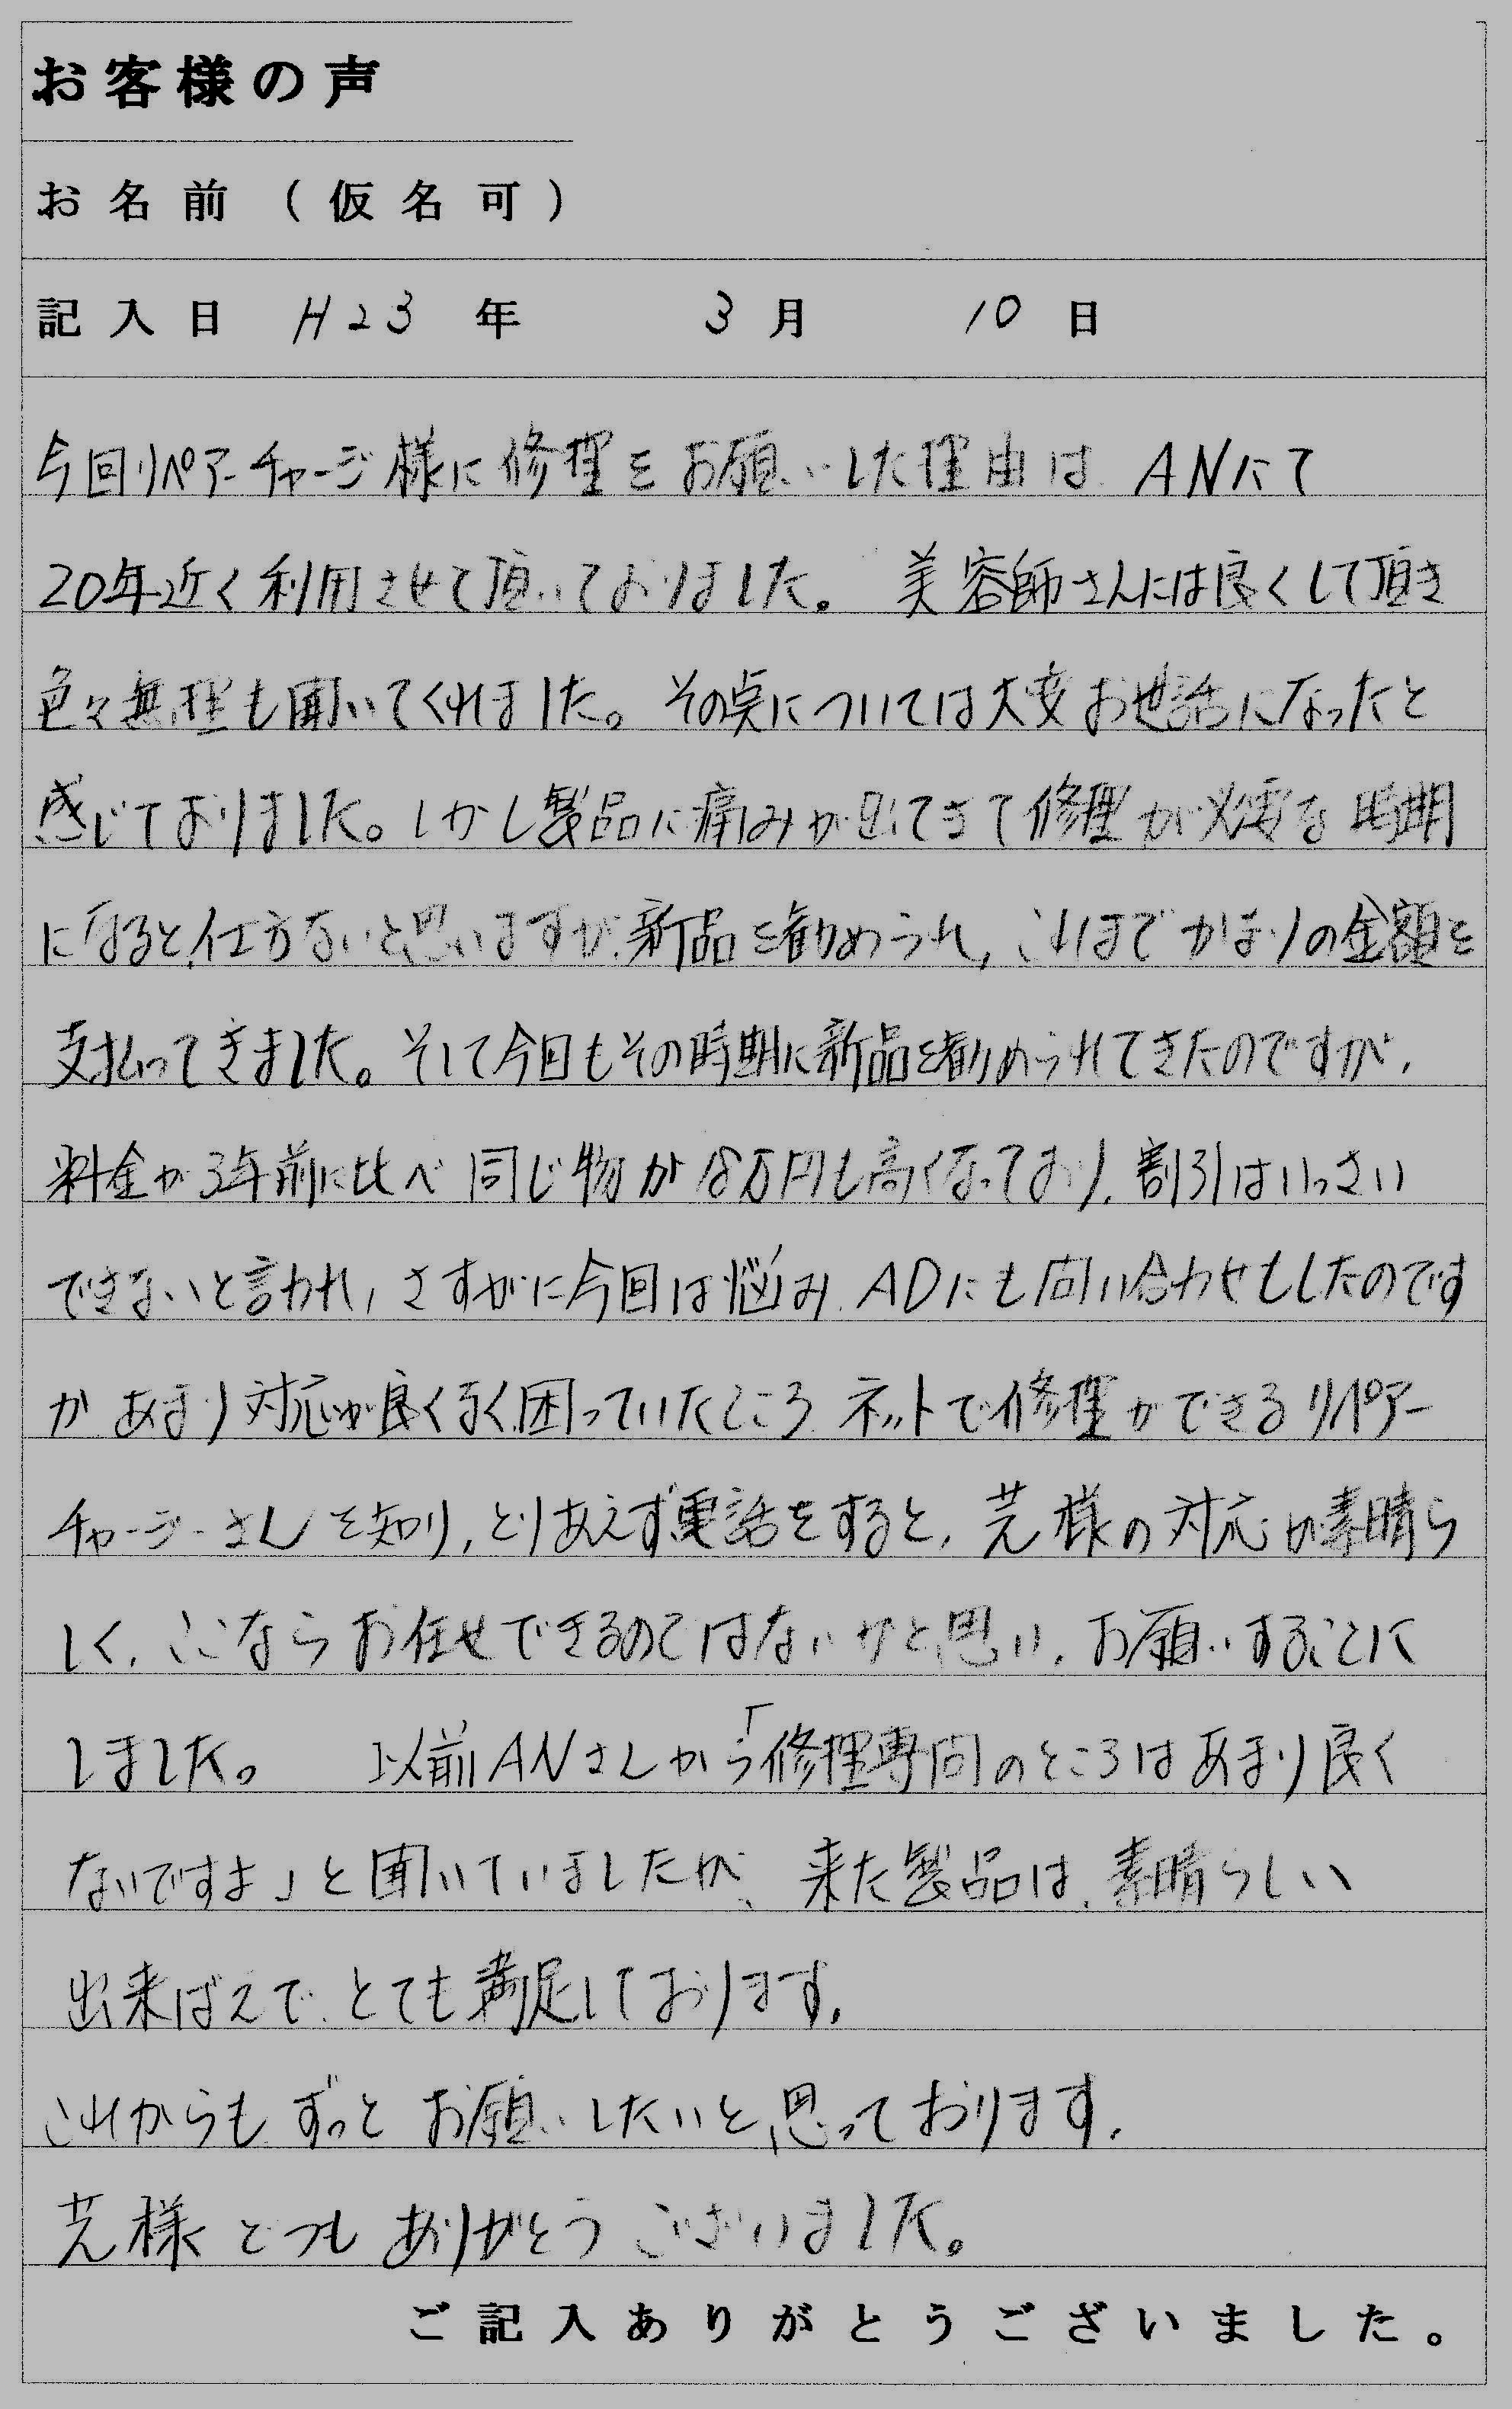 お客様の声
お名前（仮名可）
記入日 H23年 3月 10日
今回リペアーチャージ様に修理をお願いした理由は ANにて
20年近く利用させて頂いておりました。 美容師さんには良くして頂き
色々無理も聞いてくれました。その点については大変お世話になったと
感じておりました。しかし製品に痛みが出てきて修理が必要な時期
になると、仕方ないと思いますが、新品を勧められ, これまでかなりの金額を
支払ってきました。そして今回もその時期に新品を勧められてきたのですが,
料金が3年前に比べ同じ物が 8万円も高くなっており, 割引はいっさい
できないと言われ, さすがに今回は悩み, ADにも問い合わせもしたのです
が あまり対応が良くなく困っていたところ ネットで修理ができるリペアー
チャージーさんを知り, とりあえず電話をすると, 芒様の対応が素晴ら
しく, ここならお任せできるのではないかと思い, お願いすることに
しました。 以前ANさんから「修理専問のところはあまり良く
ないですよ」と聞いていましたが、来た製品は, 素晴らしい
出来ばえで とても満足しております,
これからも ずっと お願いしたいと思っております,
芒様 どうも ありがとう ございました。
ご記入ありがとうございました。